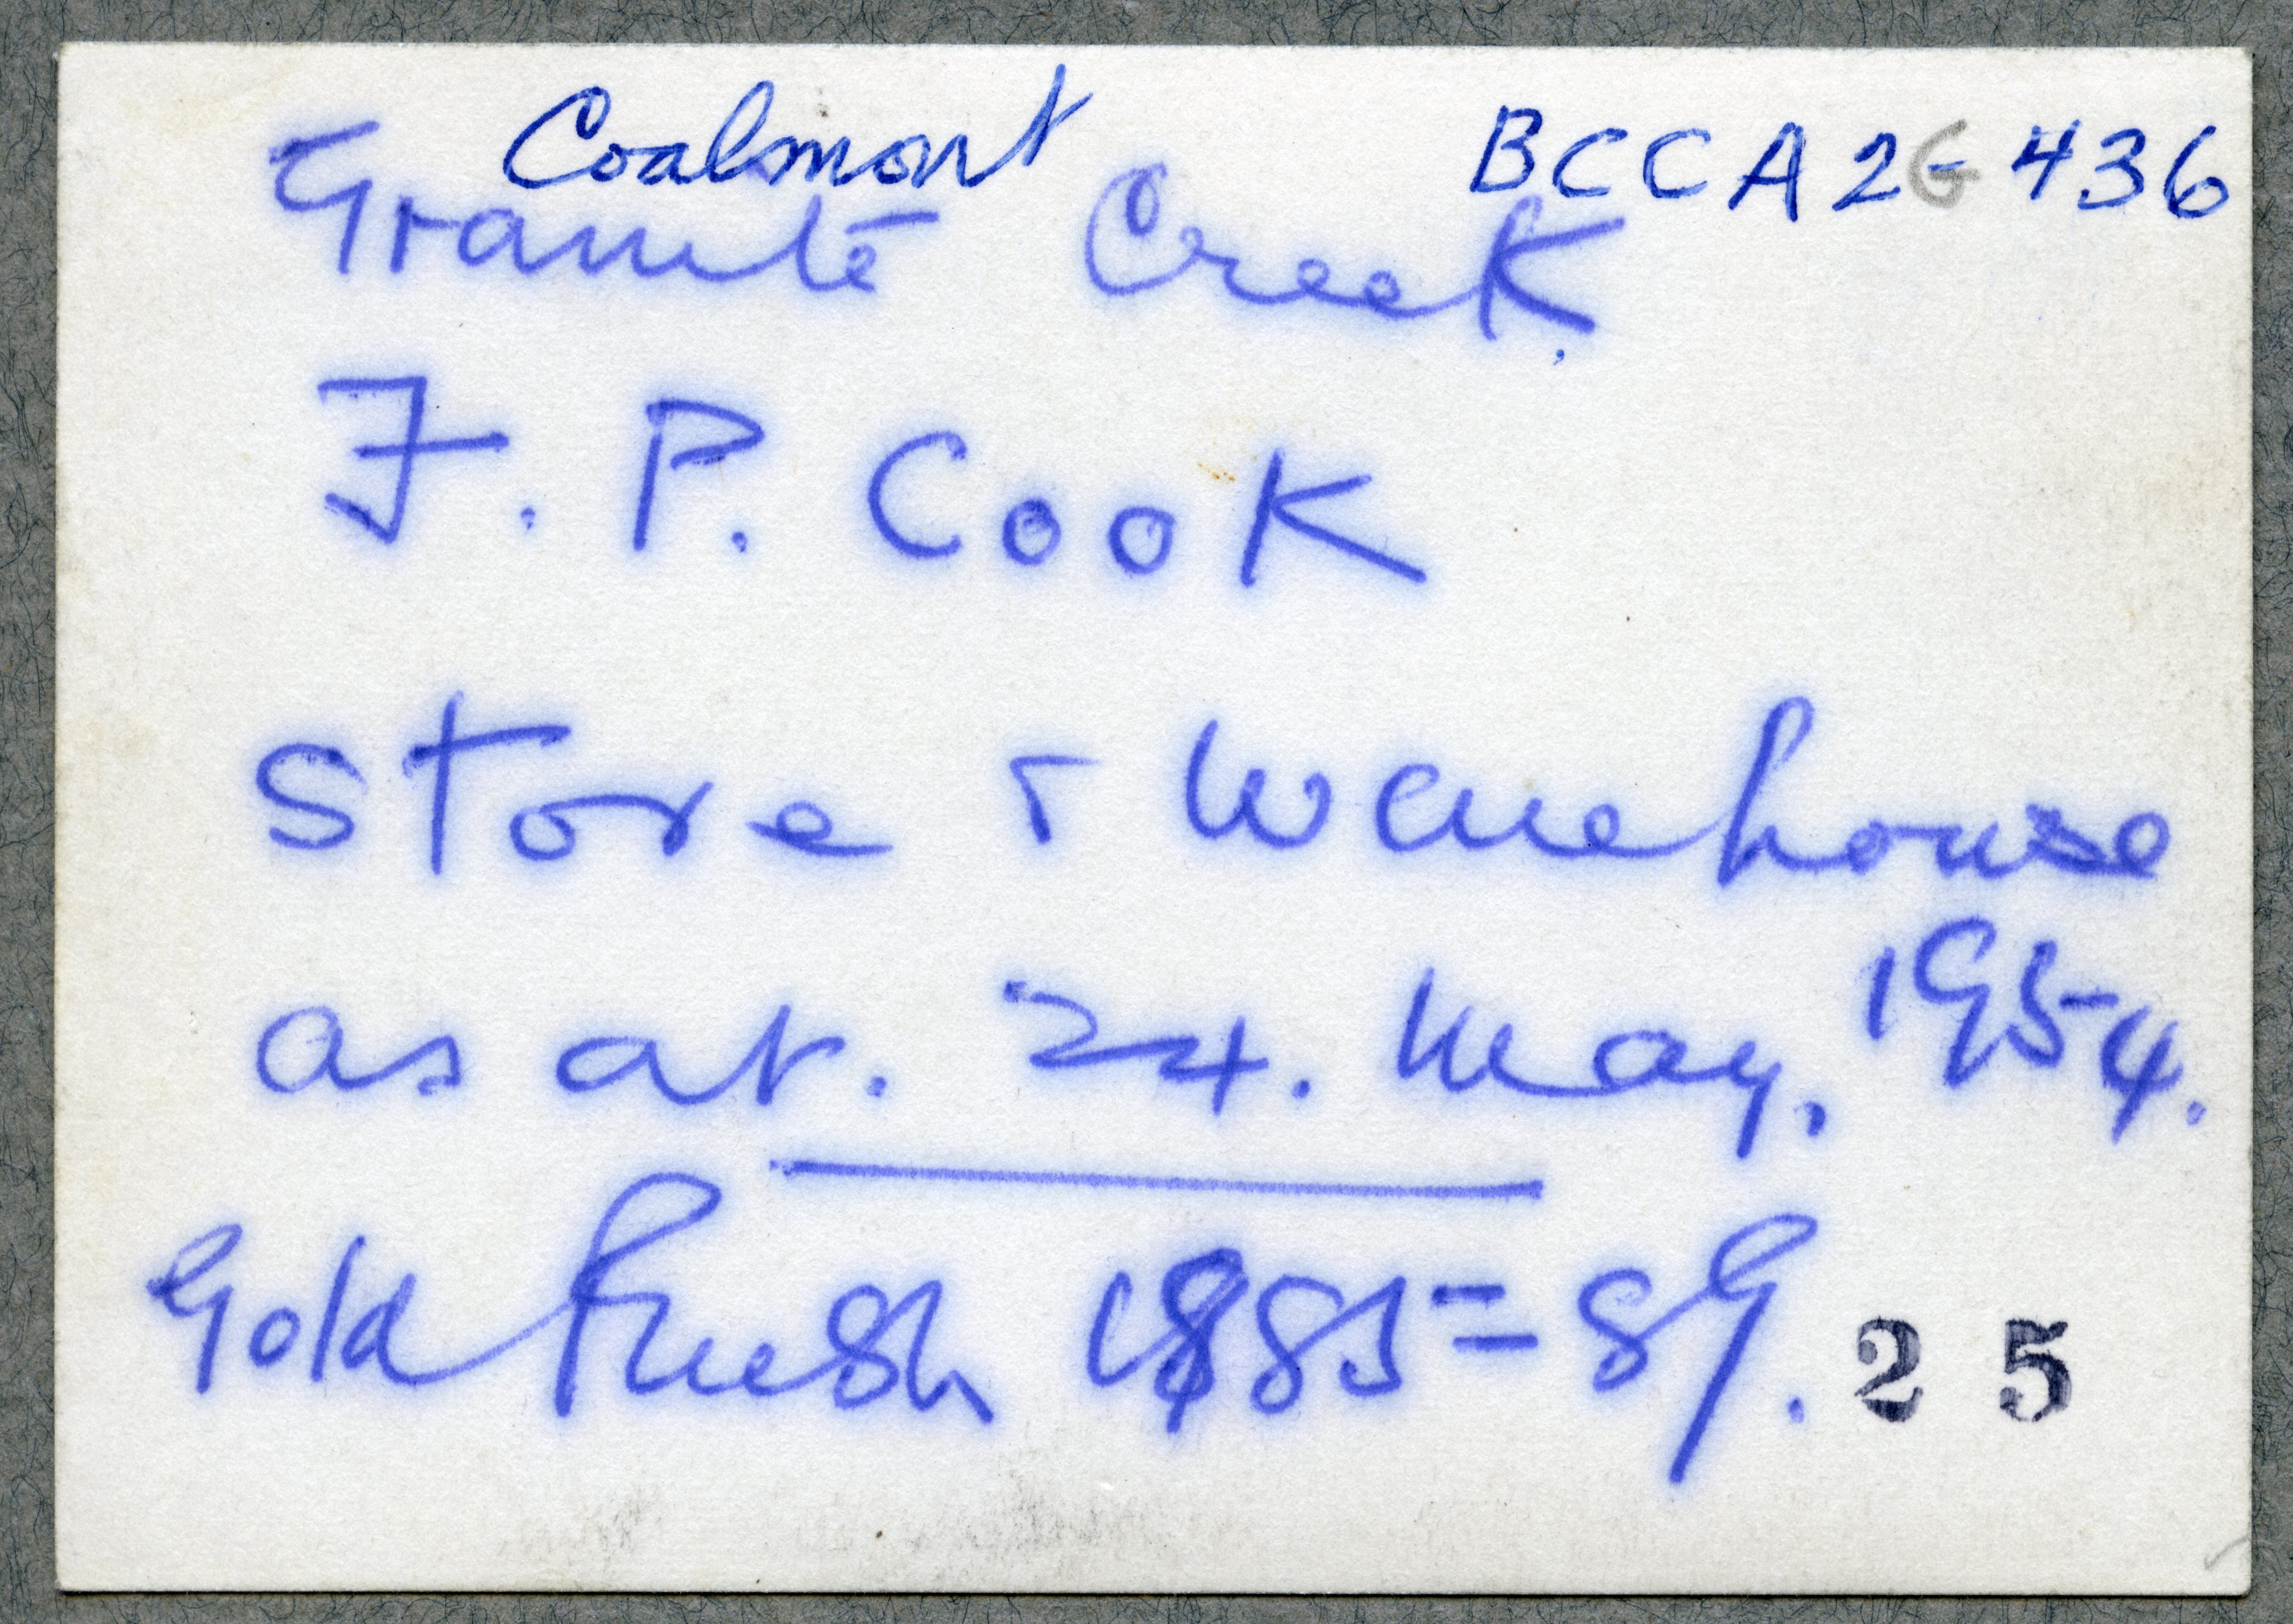 Coalmont BCCA2G-436
Granite Creek.
F. P. Cook
Store & Warehouse
as at. 24. May, 1954.
Gold Rush 1885=89. 25